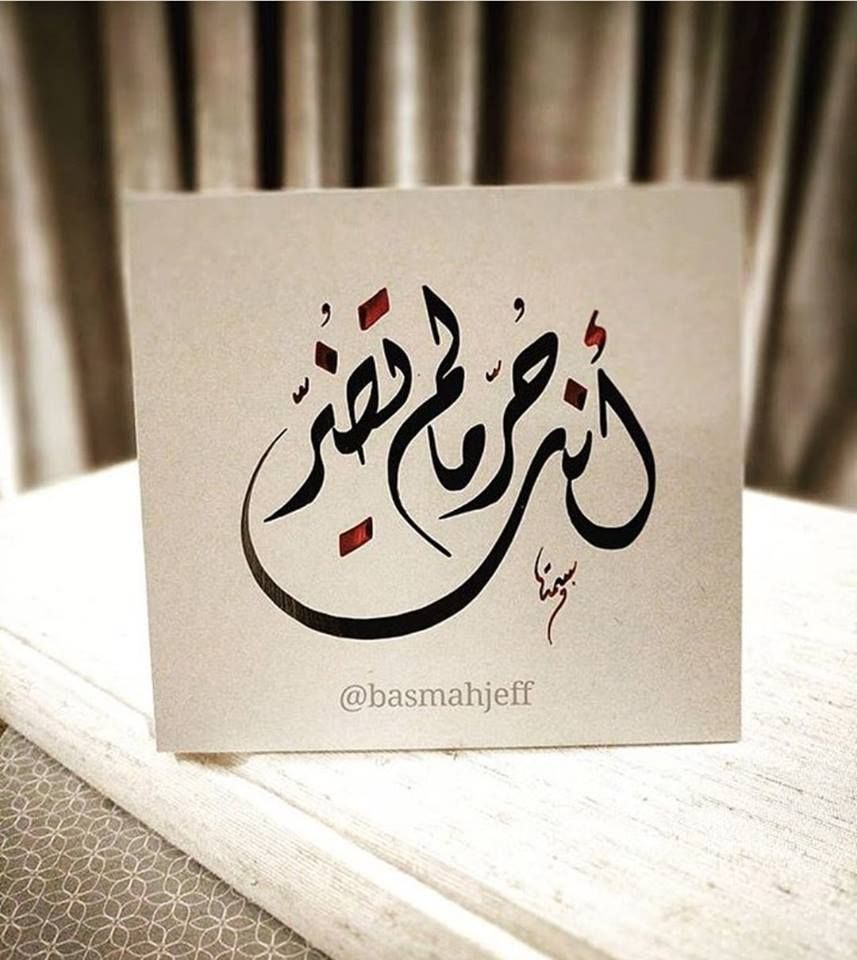 أنت حُرّ ما لم تضُرّ
بسمتها
@basmahjeff